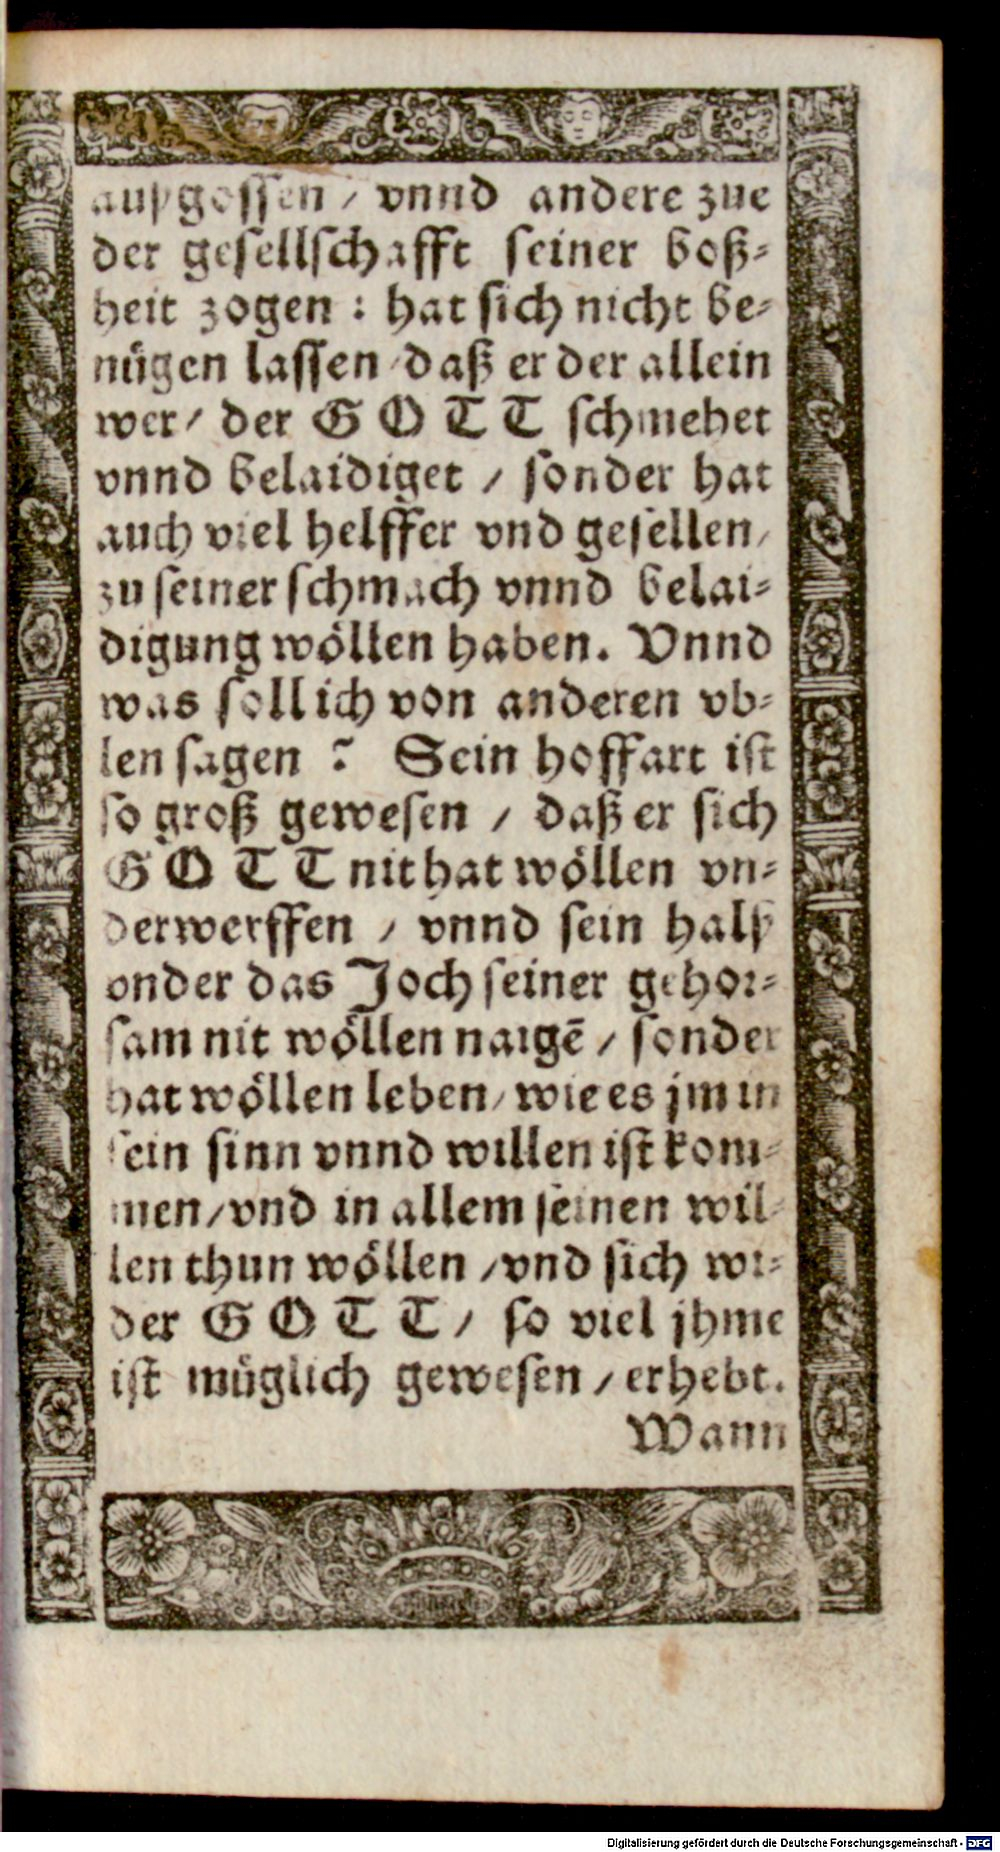 außgossen / vnnd andere zue
der gesellschafft seiner boß-
heit zogen : hat sich nicht be-
nügen lassen / daß er der allein
wer / der GOTT schmehet
vnnd belaidiget / sonder hat
auch viel helffer vnd gesellen /
zu seiner schmach vnnd belai-
digung wöllen haben. Vnnd
was soll ich von anderen vb-
len sagen ? Sein hoffart ist
so groß gewesen / daß er sich
GOTT nit hat wöllen vn-
derwerffen / vnnd sein halß
vnder das Joch seiner gehor-
sam nit wöllen naigē / sonder
hat wöllen leben / wie es jm in
sein sinn vnnd willen ist kom-
men / vnd in allem seinen wil-
len thun wöllen / vnd sich wi-
der GOTT / so viel jhme
ist müglich gewesen / erhebt.
Wann
Digitalisierung gefördert durch die Deutsche Forschungsgemeinschaft - DFG